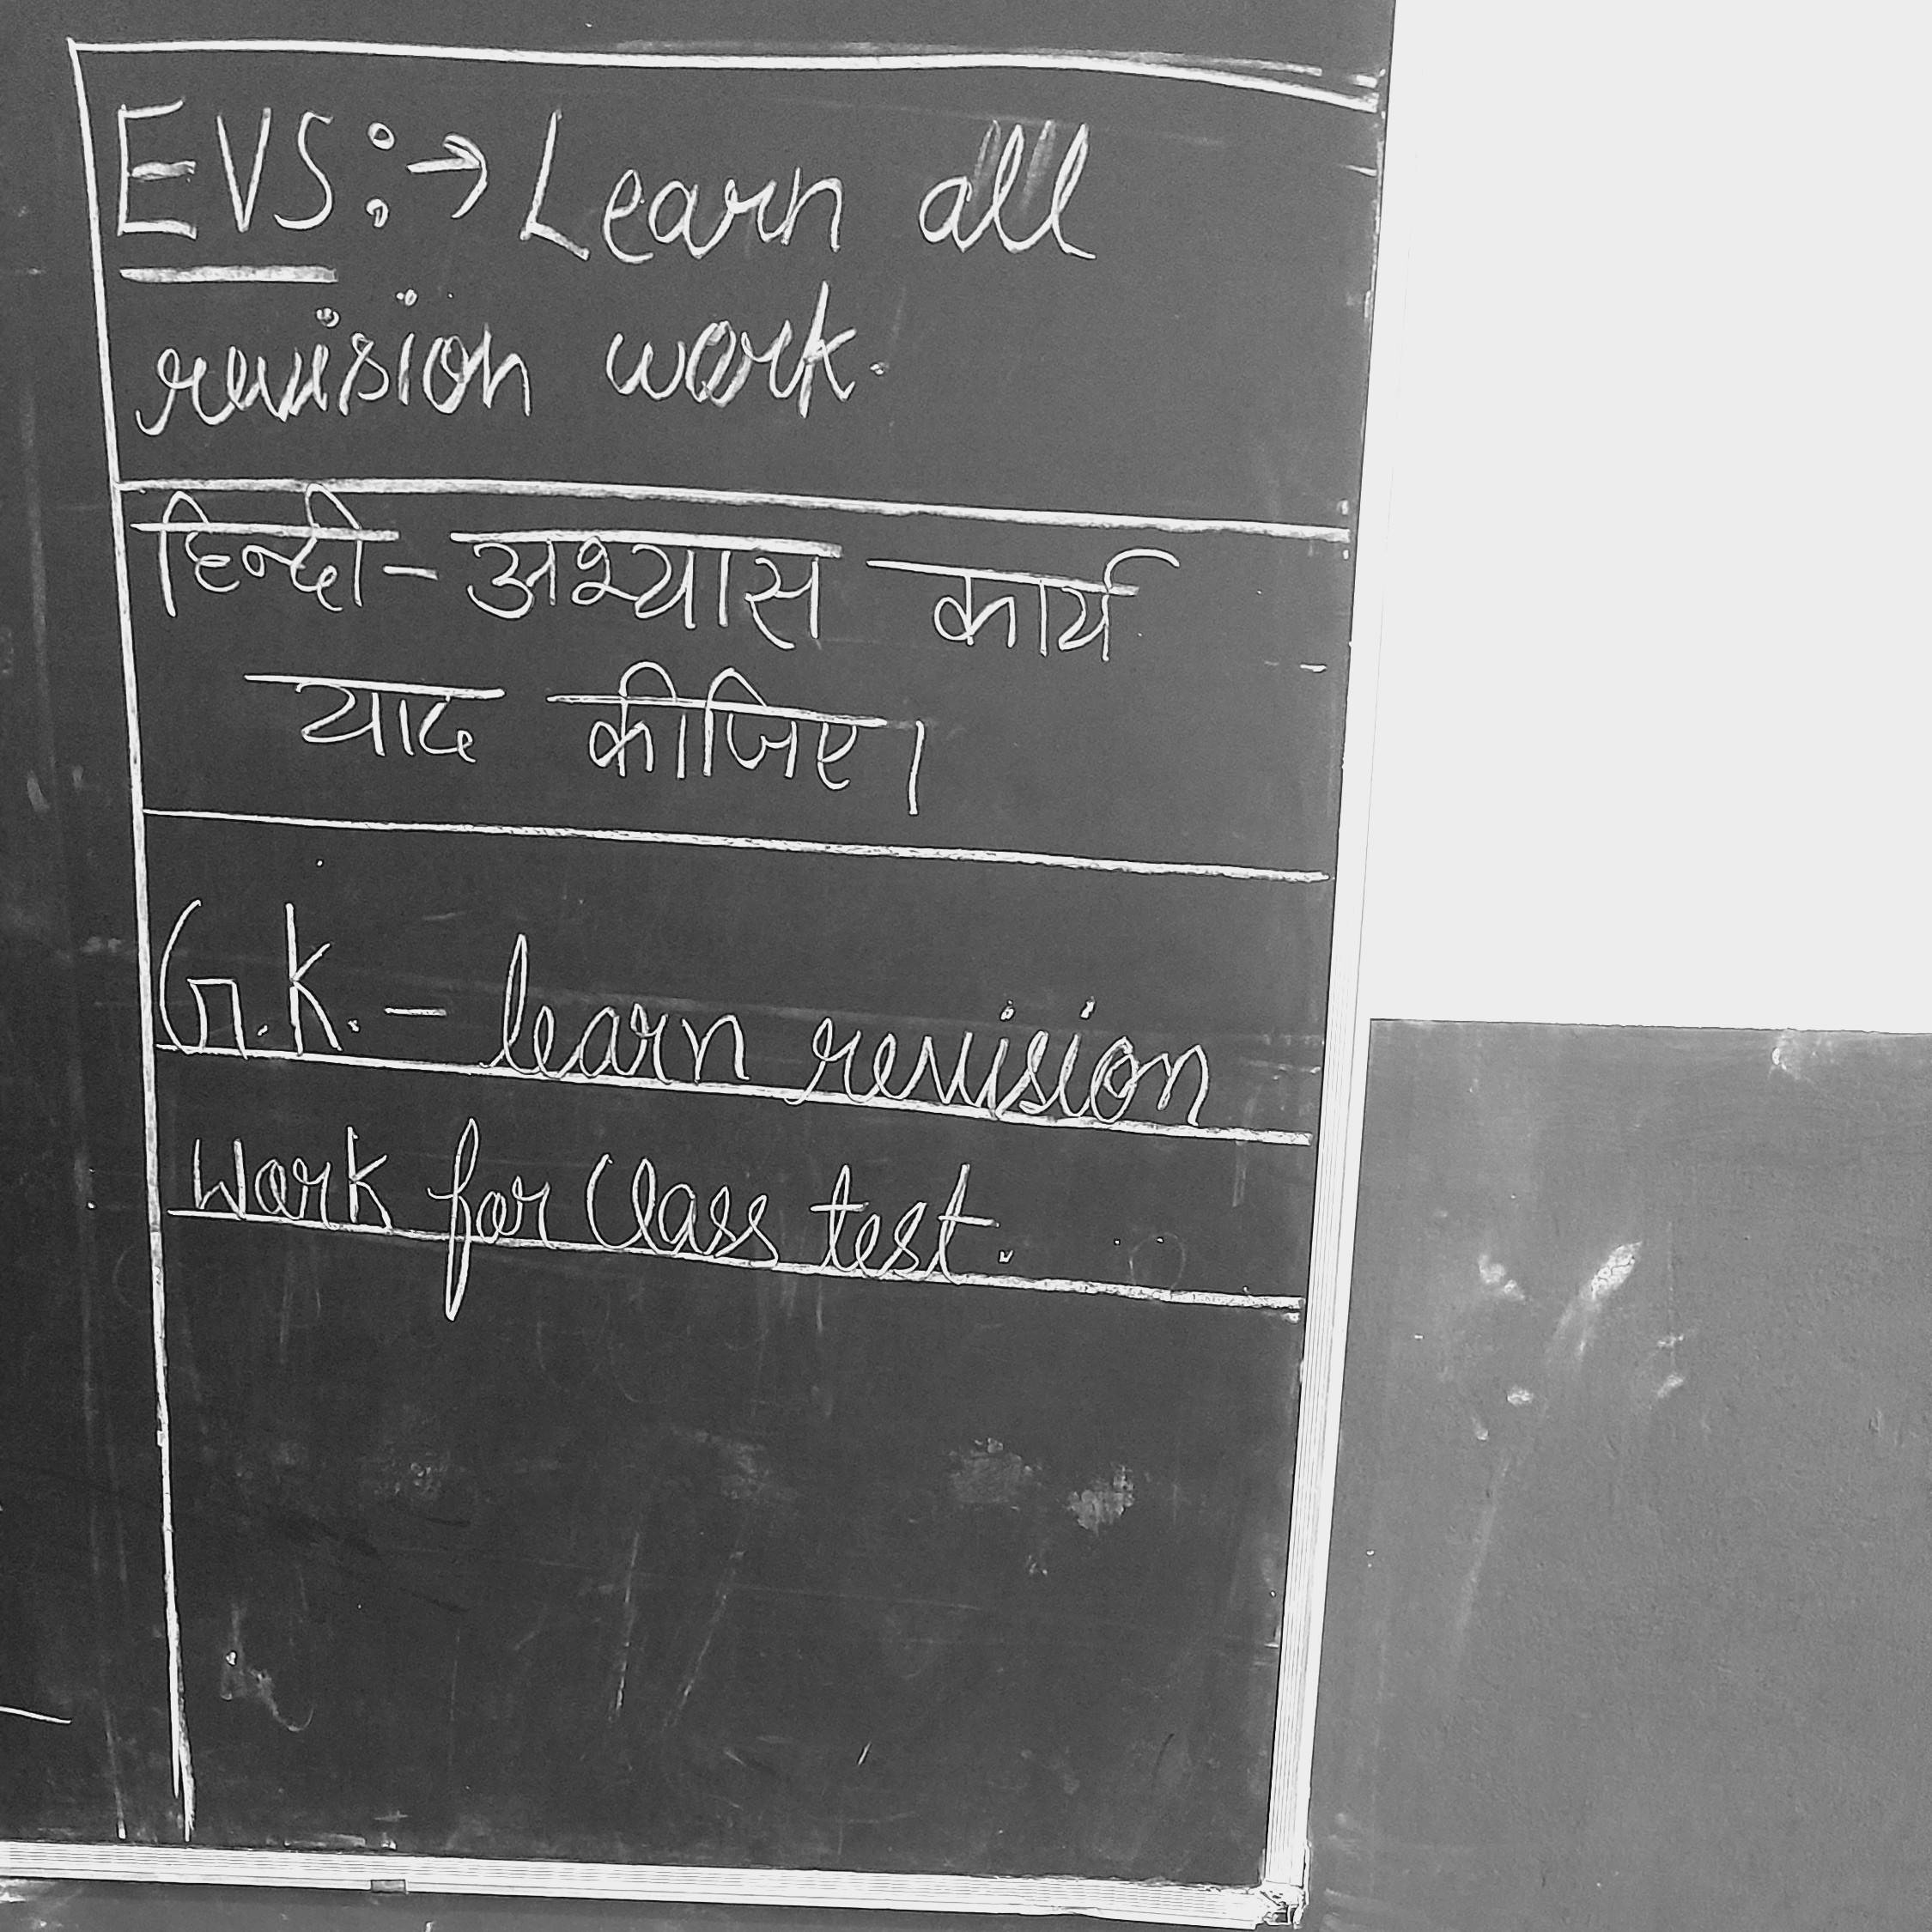 EVS:→ Learn all
revision work.
हिन्दी- अभ्यास कार्य
याद कीजिए।
G.K. - learn revision
Work for Class test.